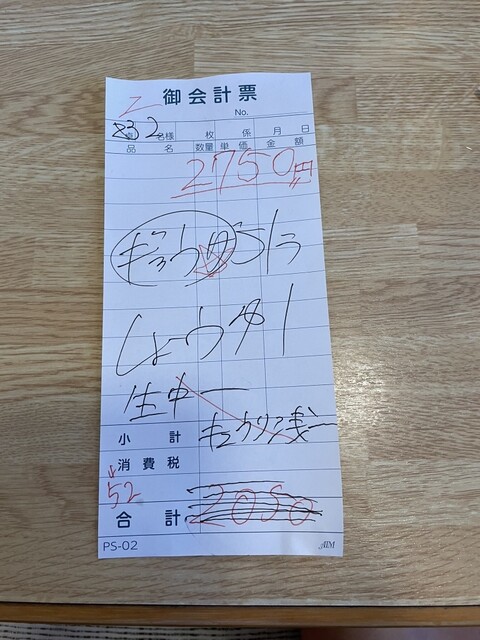 御会計票
No.
232 名様 枚 係 月 日
品 名 数量 単価 金 額
2750円
しょうゆ 1
生中 一
小 計 キュウリ浅一
消費税
52
合 計 2050
PS-02 AIM